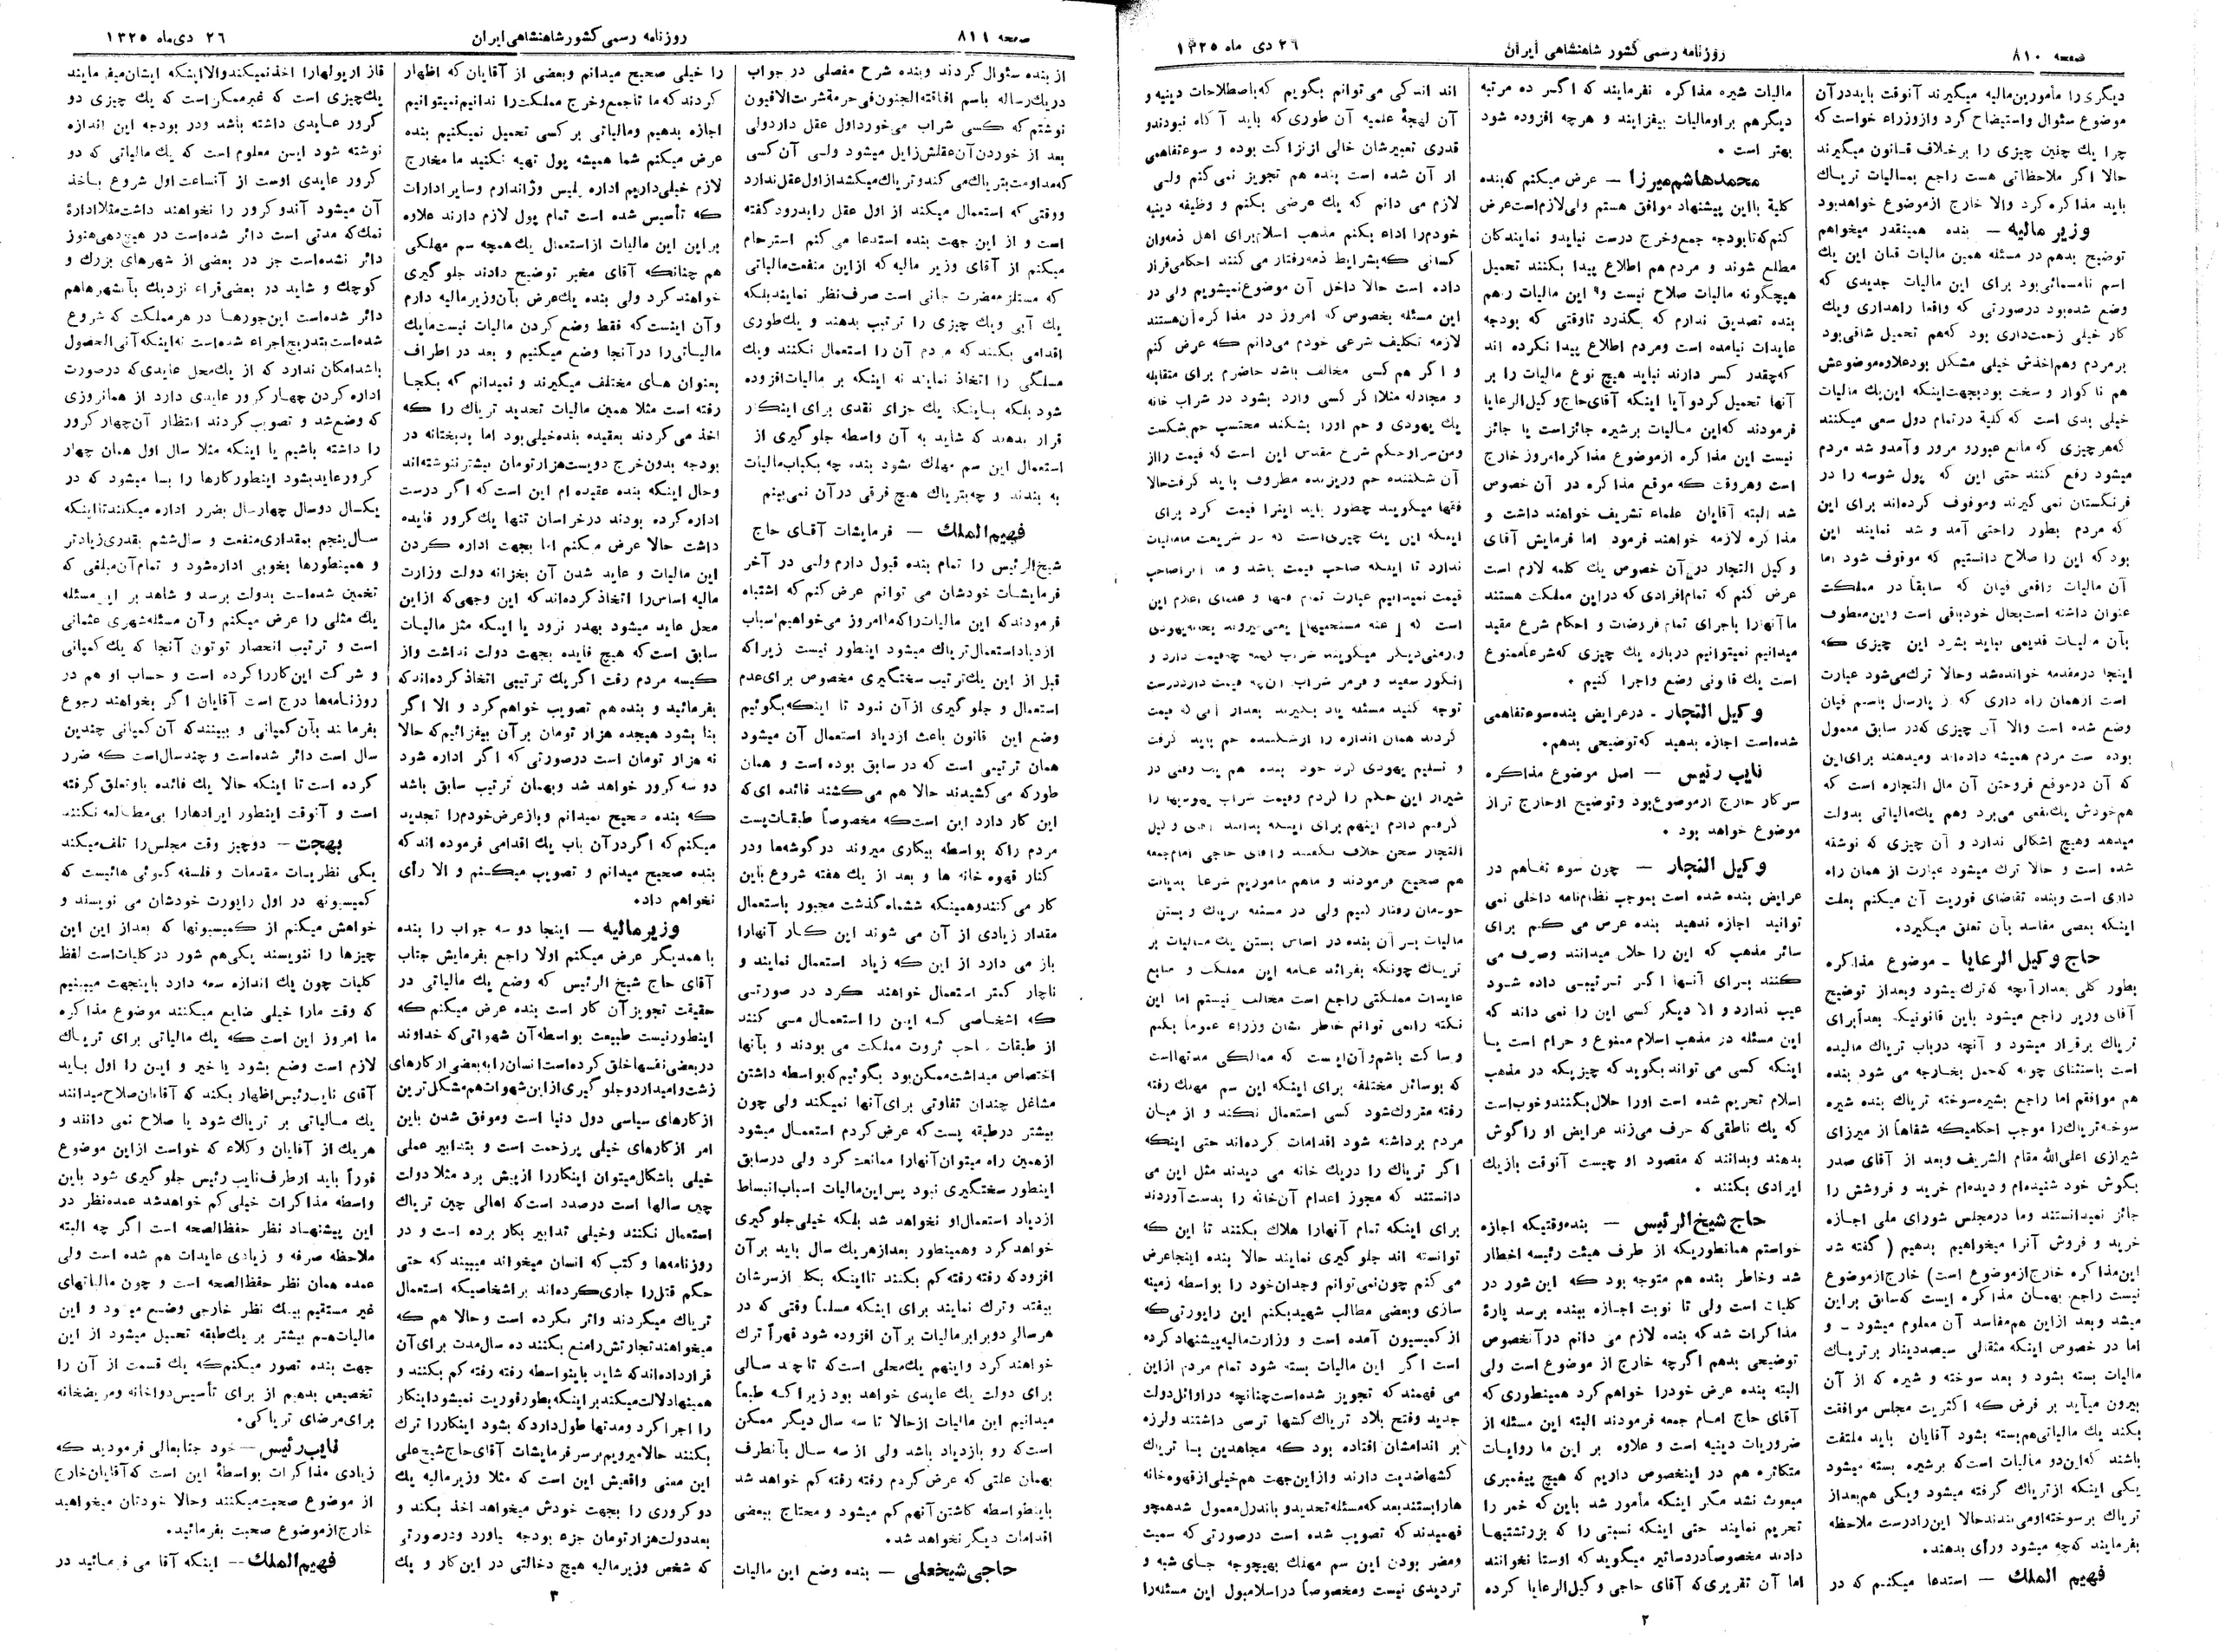 صفحه ۸۱۰
روزنامه رسمی کشور شاهنشاهی ایران
۲۶ دی ماه ۱۳۲۵
دیگری را مأمورین مالیه میگیرند آنوقت باید در آن
موضوع سئوال و استیضاح کرد و از وزراء خواست که
چرا یك چنین چیزی را برخلاف قانون میگیرند
حالا اگر ملاحظاتی هست راجع بمالیات تریاك
باید مذاکره کرد والا خارج از موضوع خواهد بود
وزیر مالیه – بنده همینقدر میخواهم
توضیح بدهم در مسئله همین مالیات قپان این یك
اسم نامسمائی بود برای این مالیات جدیدی که
وضع شده بود درصورتی که واقعا راهداری ویك
کار خیلی زحمت داری بود که هم تحمیل شاقی بود
بر مردم وهم اخذش خیلی مشکل بود علاوه موضوعش
هم ناگوار و سخت بود بجهت اینکه این یك مالیات
خیلی بدی است که کلیة در تمام دول سعی میکنند
که هر چیزی که مانع عبورو مرور وآمدو شد مردم
میشود رفع کنند حتی این که پول شوسه را در
فرنگستان نمی گیرند وموقوف کرده اند برای این
که مردم بطور راحتی آمد و شد نمایند این
بود که این را صلاح دانستیم که موقوف شود اما
آن مالیات واقعی قپان که سابقاً در مملکت
عنوان داشته است بحال خود باقی است
اینجا در مقدمه خوانده شد وحالا ترك می شود عبارت
وضع شده است والا آن چیزی که در سابق معمول
بوده است مردم همیشه داده اند ومیدهند برای این
که آن در موقع فروختن آن مال التجاره است که
هم خودش یك نفعی می برد وهم یك مالیاتی بدولت
میدهد وهیچ اشکالی ندارد و آن چیزی که نوشته
شده است و حالا ترك میشود عبارت از همان راه
داری است وبنده تقاضای فوریت آن میکنم بعلت
اینکه بعضی مفاسد بآن تعلق میگیرد.
حاج وکیل الرعایا - موضوع مذاکره
بطور کلی بعد از آنچه که ترك بشود وبعد از توضیح
تریاك برقرار میشود و آنچه درباب تریاك مالیده
هم موافقم اما راجع بشیره سوخته تریاك بنده شیره
سوخته تریاك را موجب احکامیکه شفاهاً از میرزای
شیرازی اعلی الله مقام الشریف وبعد از آقای صدر
بگوش خود شنیده ام و دیده ام خرید و فروشش را
جائز نمیدانستند وما در مجلس شورای ملی اجازه
خرید و فروش آنرا میخواهیم بدهیم ( گفته شد
این مذاکره خارج از موضوع است) خارج از موضوع
میشد وبعد از این هم مفاسد آن معلوم میشود - و
اما در خصوص اینکه مثقالی سیصد دینار بر تریاك
مالیات بسته بشود و بعد سوخته و شیره که از آن
بیرون میآید بر فرض که اکثریت مجلس موافقت
بکند یك مالیاتی هم بسته بشود آقایان باید ملتفت
باشند که این دو مالیات است که بر شیره بسته میشود
یکی اینکه از تریاك گرفته میشود ویکی هم بعد از
تریاك بر سوخته او می بندند حالا این را درست ملاحظه
بفرمایند که چه میشود ورأی بدهند.
فهیم الملك – استدعا میکنم که در
مالیات شیره مذاکره نفرمایند که اگر ده مرتبه
دیگر هم بر او مالیات بیفزایند و هرچه افزوده شود
بهتر است .
محمدهاشم میرزا – عرض میکنم که بنده
کلیة بااین پیشنهاد موافق هستم ولی لازم است عرض
کنم که تا بودجه جمع وخرج درست نیاید و نمایندگان
مطلع شوند و مردم هم اطلاع پیدا بکنند تحمیل
هیچگونه مالیات صلاح نیست و این مالیات را هم
بنده تصدیق ندارم که بگذرد تا وقتی که بودجه
عایدات نیامده است ومردم اطلاع پیدا نکرده اند
که چقدر کسر دارند نباید هیچ نوع مالیات را بر
آنها تحمیل کرد و آیا اینکه آقای حاج وکیل الرعایا
فرمودند که این مالیات بر شیره جائز است یا جائز
نیست این مذاکره از موضوع مذاکره امروز خارج
است وهر وقت که موقع مذاکره در آن خصوص
شد البته آقایان علماء تشریف خواهند داشت و
مذاکره لازمه خواهند فرمود اما فرمایش آقای
وکیل التجار در آن خصوص یك کلمه لازم است
عرض کنم که تمام افرادی که در این مملکت هستند
ما آنها را باجرای تمام فروضات و احکام شرع مقید
میدانیم نمیتوانیم درباره یك چیزی که شرعا ممنوع
است یك قانونی وضع واجرا کنیم .
وکیل التجار - در عرایض بنده سوء تفاهمی
شده است اجازه بدهید که توضیحی بدهم.
نایب رئیس – اصل موضوع مذاکره
سرکار خارج از موضوع بود وتوضیح او خارج تر از
موضوع خواهد بود .
وکیل التجار – چون سوء تفاهم در
عرایض بنده شده است بموجب نظامنامه داخلی نمی
توانید اجازه ندهید بنده عرض می کنم برای
سائر مذهب که این را حلال میدانند وصرف می
کنند برای آنها اگر ترتیبی داده شود
عیب ندارد و الا دیگر کسی این را نمی داند که
این مسئله در مذهب اسلام ممنوع و حرام است یا
اینکه کسی می تواند بگوید که چیزیکه در مذهب
اسلام تحریم شده است اورا حلال بکنند وخوب است
که یك ناطقی که حرف می زند عرایض او را گوش
بدهند وبدانند که مقصود او چیست آنوقت باز یك
ایرادی بکنند .
حاج شیخ الرئیس – بنده وقتیکه اجازه
خواستم همانطوریکه از طرف هیئت رئیسه اخطار
شد وخاطر بنده هم متوجه بود که این شور در
کلیات است ولی تا نوبت اجازه ببنده برسد پارهٔ
مذاکرات شد که بنده لازم می دانم در آنخصوص
توضیحی بدهم اگرچه خارج از موضوع است ولی
البته بنده عرض خودرا خواهم کرد همینطوری که
آقای حاج امام جمعه فرمودند البته این مسئله از
ضروریات دینیه است و علاوه بر این ما روایات
متکاثره هم در اینخصوص داریم که هیچ پیغمبری
مبعوث نشد مگر اینکه مأمور شد باین که خمر را
تحریم نمایند حتی اینکه نسبتی را که بزرتشتیها
دادند مخصوصاً در دساتیر میگوید که اوستا نخوانند
اما آن تقریری که آقای حاجی وکیل الرعایا کرده
اند اندکی می توانم بگویم که باصطلاحات دینیه و
آن لهجهٔ علمیه آن طوری که باید آگاه نبودند و
قدری تعبیرشان خالی از نزاکت بوده و سوء تفاهمی
از آن شده است بنده هم تجویز نمی کنم ولی
لازم می دانم که یك عرضی بکنم و وظیفه دینیه
خودم را اداء بکنم مذهب اسلام برای اهل ذمه وان
کسانی که بشرایط ذمه رفتار می کنند احکامی قرار
داده است حالا داخل آن موضوع نمیشویم ولی در
این مسئله بخصوص که امروز در مذاکره آن هستند
لازمه تکلیف شرعی خودم می دانم که عرض کنم
و اگر هم کسی مخالف باشد حاضرم برای متقابله
و مجادله مثلا اگر کسی وارد بشود در شراب خانه
یك یهودی و خم اورا بشکند محتسب خم شکست
فقها میگویند چطور باید اینرا قیمت کرد برای
ندارد تا اینکه صاحب قیمت باشد
توجه کنید مسئله یاد بگیرید
شیراز این حکم را کردم وقیمت شراب یهودیها را
هم صحیح فرمودند و ماهم ماموریم شرعا بدیانت
مالیات بر آن بنده در اساس بستن یك مالیات بر
تریاك چونکه بفرائد عامه این مملکت و منابع
عایدات مملکتی راجع است مخالف نیستم اما این
نکته را نمی توانم خاطر نشان وزراء عموماً بکنم
وساکت باشم و آن اینست که ممالکی مدتهااست
که بوسائل مختلفه برای اینکه این سم مهلك رفته
رفته متروك شود کسی استعمال نکند و از میان
مردم برداشته شود اقدامات کرده اند حتی اینکه
اگر تریاك را در یك خانه می دیدند مثل این می
دانستند که مجوز اعدام آن خانه را بدست آوردند
برای اینکه تمام آنهارا هلاك بکنند تا این که
توانسته اند جلوگیری نمایند حالا بنده اینجا عرض
می کنم چون نمی توانم وجدان خود را بواسطه زمینه
سازی وبعضی مطالب شهید بکنم این راپورتی که
از کمیسیون آمده است و وزارت مالیه پیشنهاد کرده
است اگر این مالیات بسته شود تمام مردم از این
می فهمند که تجویز شده است چنانچه در اوائل دولت
جدید وفتح بلاد تریاك کشها ترسی داشتند ولرزه
بر اندامشان افتاده بود که مجاهدین با تریاك
کشها ضدیت دارند و از این جهت هم خیلی از قهوه خانه
ها را بستند بعد که مسئله تحدید و باندرل معمول شد همچو
فهمیدند که تصویب شده است درصورتی که سمیت
ومضر بودن این سم مهلك بهیچوجه جای شبه و
تردیدی نیست ومخصوصاً در اسلامبول این مسئله را
۲
صفحه ۸۱۱
روزنامه رسمی کشور شاهنشاهی ایران
۲۶ دی ماه ۱۳۲۵
از بنده سئوال کردند وبنده شرح مفصلی در جواب
در یك رساله باسم افاقة الجنون فی حرمة شرب الافیون
نوشتم که کسی شراب می خورد اول عقل دارد ولی
بعد از خوردن آن عقلش زایل میشود ولی آن کسی
که مداومت بتریاك می کند و تریاك میکشد از اول عقل ندارد
ووقتی که استعمال میکند از اول عقل را بدرود گفته
است و از این جهت بنده استدعا می کنم استرحام
میکنم از آقای وزیر مالیه که از این منفعت مالیاتی
که مستلزم مضرت جانی است صرف نظر نمایند بلکه
یك آبی ویك چیزی را ترتیب بدهند و یك طوری
اقدامی بکنند که مردم آن را استعمال نکنند ویك
مسلکی را اتخاذ نمایند نه اینکه بر مالیات افزوده
شود بلکه باینکه یك جزای نقدی برای اینکار
قرار بدهند که شاید به آن واسطه جلوگیری از
استعمال این سم مهلك بشود بنده چه بکباب مالیات
به بندند و چه بتریاك هیچ فرقی در آن نمی بینم
فهیم الملك – فرمایشات آقای حاج
شیخ الرئیس را تمام بنده قبول دارم ولی در آخر
فرمایشات خودشان می توانم عرض کنم که اشتباه
فرمودند که این مالیات را که ما امروز می خواهیم اسباب
ازدیاد استعمال تریاك میشود اینطور نیست زیرا که
قبل از این یك ترتیب سختگیری مخصوص برای عدم
استعمال و جلوگیری از آن نبود تا اینکه بگوئیم
وضع این قانون باعث ازدیاد استعمال آن میشود
همان ترتیبی است که در سابق بوده است و همان
طور که می کشیدند حالا هم می کشند فائده ای که
این کار دارد این است که مخصوصاً طبقات پست
مردم را که بواسطه بیکاری میروند در گوشه ها ودر
کنار قهوه خانه ها و بعد از یك هفته شروع باین
کار می کنند وهمینکه ششماه گذشت مجبور باستعمال
مقدار زیادی از آن می شوند این کار آنهارا
باز می دارد از این که زیاد استعمال نمایند و
ناچار کمتر استعمال خواهند کرد در صورتی
که اشخاصی که این را استعمال می کنند
از طبقات صاحب ثروت مملکت می بودند و بآنها
اختصاص میداشت ممکن بود بگوئیم که بواسطه داشتن
مشاغل چندان تفاوتی برای آنها نمیکند ولی چون
بیشتر در طبقه پست که عرض کردم استعمال میشود
از همین راه میتوان آنهارا ممانعت کرد ولی در سابق
اینطور سختگیری نبود پس این مالیات اسباب انبساط
ازدیاد استعمال او نخواهد شد بلکه خیلی جلوگیری
خواهد کرد وهمینطور بعد از هر یك سال باید بر آن
افزود که رفته رفته کم بکنند تا اینکه بکلی از سرشان
بیفتد وترك نمایند برای اینکه مسلماً وقتی که در
هر سالی دو برابر مالیات بر آن افزوده شود قهراً ترك
خواهند کرد واینهم یك محلی است که تا چند سالی
برای دولت یك عایدی خواهد بود زیرا که طبعاً
میدانیم این مالیات از حالا تا سه سال دیگر ممکن
است که رو بازدیاد باشد ولی از سه سال بآنطرف
بهمان علتی که عرض کردم رفته رفته کم خواهد شد
باینطور واسطه کاشتن آنهم کم میشود و محتاج ببعضی
اقدامات دیگر نخواهد شد.
حاجی شیخعلی – بنده وضع این مالیات
را خیلی صحیح میدانم وبعضی از آقایان که اظهار
کردند که ما تا جمع وخرج مملکت را ندانیم نمیتوانیم
اجازه بدهیم ومالیاتی بر کسی تحمیل نمیکنیم بنده
عرض میکنم شما همیشه پول تهیه نکنید ما مخارج
لازم خیلی داریم اداره پلیس وژاندارم وسایر ادارات
که تأسیس شده است تمام پول لازم دارند علاوه
بر این این مالیات از استعمال یك همچه سم مهلکی
هم چنانکه آقای مخبر توضیح دادند جلوگیری
خواهند کرد ولی بنده یك عرض بآن وزیر مالیه دارم
وآن اینست که فقط وضع کردن مالیات نیست ما یك
مالیاتی را در آنجا وضع میکنیم و بعد در اطراف
بعنوان های مختلف میگیرند و نمیدانم که بکجا
رفته است مثلا همین مالیات تحدید تریاك را که
اخذ می کردند بعقیده بنده خیلی بود اما بدبختانه در
بودجه بدون خرج دویست هزار تومان بیشتر ننوشته اند
وحال اینکه بنده عقیده ام این است که اگر درست
اداره کرده بودند در خراسان تنها یك کرور فایده
داشت حالا عرض میکنم اما بجهت اداره کردن
این مالیات و عاید شدن آن بخزانه دولت وزارت
مالیه اساس را اتخاذ کرده اند که این وجهی که از این
محل عاید میشود بهدر نرود یا اینکه مثل مالیات
سابق است که هیچ فایده بجهت دولت نداشت واز
کیسه مردم رفت اگر یك ترتیبی اتخاذ کرده اند که
بفرمائید و بنده هم تصویب خواهم کرد و الا اگر
بنا بشود هیجده هزار تومان بر آن بیفزائیم که حالا
نه هزار تومان است درصورتی که اگر اداره شود
دو سه کرور خواهد شد وبهمان ترتیب سابق باشد
که بنده صحیح نمیدانم وباز عرض خودم را تجدید
میکنم که اگر در آن باب یك اقدامی فرموده اند که
بنده صحیح میدانم و تصویب میکنم و الا رأی
نخواهم داد.
وزیر مالیه – اینجا دو سه جواب را بنده
باهمدیگر عرض میکنم اولا راجع بفرمایش جناب
آقای حاج شیخ الرئیس که وضع یك مالیاتی در
حقیقت تجویز آن کار است بنده عرض میکنم که
اینطور نیست طبیعت بواسطه آن شهواتی که خداوند
در بعضی نفسها خلق کرده است انسان را به بعضی از کارهای
زشت وامیدارد و جلوگیری از این شهوات هم مشکل ترین
از کارهای سیاسی دول دنیا است وموفق شدن باین
امر از کارهای خیلی پر زحمت است و بتدابیر عملی
خیلی باشکال میتوان اینکار را از پیش برد مثلا دولت
چین سالها است درصدد است که اهالی چین تریاك
استعمال نکنند وخیلی تدابیر بکار برده است و در
روزنامه ها و کتب که انسان میخواند میبیند که حتی
حکم قتل را جاری کرده اند بر اشخاصیکه استعمال
تریاك میکردند واثر نکرده است وحالا هم که
میخواهند تجارتش را منع بکنند ده سال مدت برای آن
قرار داده اند که شاید باینواسطه رفته رفته کم بکنند و
همینها دلالت میکند بر اینکه بطور فوریت نمیشود اینکار
را اجرا کرد ومدتها طول دارد که بشود اینکار را ترك
بکنند حالا میرویم بر سر فرمایشات آقای حاج شیخ علی
این معنی واقعیش این است که مثلا وزیر مالیه یك
دو کروری را بجهت خودش میخواهد اخذ بکند و
بعد دولت هزار تومان جزء بودجه بیاورد ودر صورتی
که شخص وزیر مالیه هیچ دخالتی در این کار و یك
قاز از پولها را اخذ نمیکند والا اینکه ایشان میفرمایند
یك چیزی است که غیر ممکن است که یك چیزی دو
کرور عایدی داشته باشد ودر بودجه این اندازه
نوشته شود این معلوم است که یك مالیاتی که دو
کرور عایدی اوست از آنساعت اول شروع باخذ
آن میشود آندو کرور را نخواهند داشت مثلا ادارهٔ
نمك که مدتی است دائر شده است در هیچ دهی هنوز
دائر نشده است جز در بعضی از شهرهای بزرك و
کوچك و شاید در بعضی قراء نزدیك بآنشهرها هم
دائر شده است این جورها در هر مملکت که شروع
شده است بتدریج اجراء شده است نه اینکه آنی الحصول
باشد امکان ندارد که از یك محل عایدی که درصورت
اداره کردن چهار کرور عایدی دارد از همانروزی
که وضع شد و تصویب کردند انتظار آن چهار کرور
را داشته باشیم یا اینکه مثلا سال اول همان چهار
کرور عاید بشود اینطور کارها را بسا میشود که در
یکسال دوسال چهارسال بضرر اداره میکنند تا اینکه
سال پنجم بمقداری منفعت و سال ششم بقدری زیادتر
و همینطورها بخوبی اداره شود و تمام آن مبلغی که
تخمین شده است بدولت برسد و شاهد بر این مسئله
یك مثلی را عرض میکنم وآن مسئله شهری عثمانی
است و ترتیب انحصار توتون آنجا که یك کمپانی
و شرکت این کار را کرده است و حساب او هم در
روزنامه ها درج است آقایان اگر بخواهند رجوع
بفرمایند بآن کمپانی و ببینند که آن کمپانی چندین
سال است دائر شده است و چند سال است که ضرر
کرده است تا اینکه حالا یك فائده باو تعلق گرفته
است و آنوقت اینطور ایرادها را بی مطالعه نکنند
بهجت – دو چیز وقت مجلس را تلف میکند
یکی نظریات مقدمات و فلسفه گوئی هائیست که
کمیسیونها در اول راپورت خودشان می نویسند و
خواهش میکنم از کمیسیونها که بعد از این این
چیزها را ننویسند یکی هم شور در کلیات است لفظ
کلیات چون یك اندازه سعه دارد باینجهت میبینیم
که وقت مارا خیلی ضایع میکنند موضوع مذاکره
ما امروز این است که یك مالیاتی برای تریاك
لازم است وضع بشود یا خیر و این را اول باید
آقای نایب رئیس اظهار بکند که آقایان صلاح میدانند
یك مالیاتی بر تریاك شود یا صلاح نمی دانند و
هر یك از آقایان و کلاء که خواست از این موضوع
فوراً باید از طرف نایب رئیس جلوگیری شود باین
واسطه مذاکرات خیلی کم خواهد شد عمده نظر در
این پیشنهاد نظر حفظ الصحه است اگر چه البته
ملاحظه صرفه و زیادی عایدات هم شده است ولی
عمده همان نظر حفظ الصحه است و چون مالیاتهای
غیر مستقیم بیك نظر خارجی وضع میشود و این
مالیات هم بیشتر بر یك طبقه تحمیل میشود از این
جهت بنده تصور میکنم که یك قسمت از آن را
تخصیص بدهیم از برای تأسیس دواخانه ومریضخانه
برای مرضای تریاکی.
نایب رئیس – خود جنابعالی فرمودید که
زیادی مذاکرات بواسطهٔ این است که آقایان خارج
از موضوع صحبت میکنند وحالا خودتان میخواهید
خارج از موضوع صحبت بفرمائید.
فهیم الملك – اینکه آقا می فرمائید در
۳